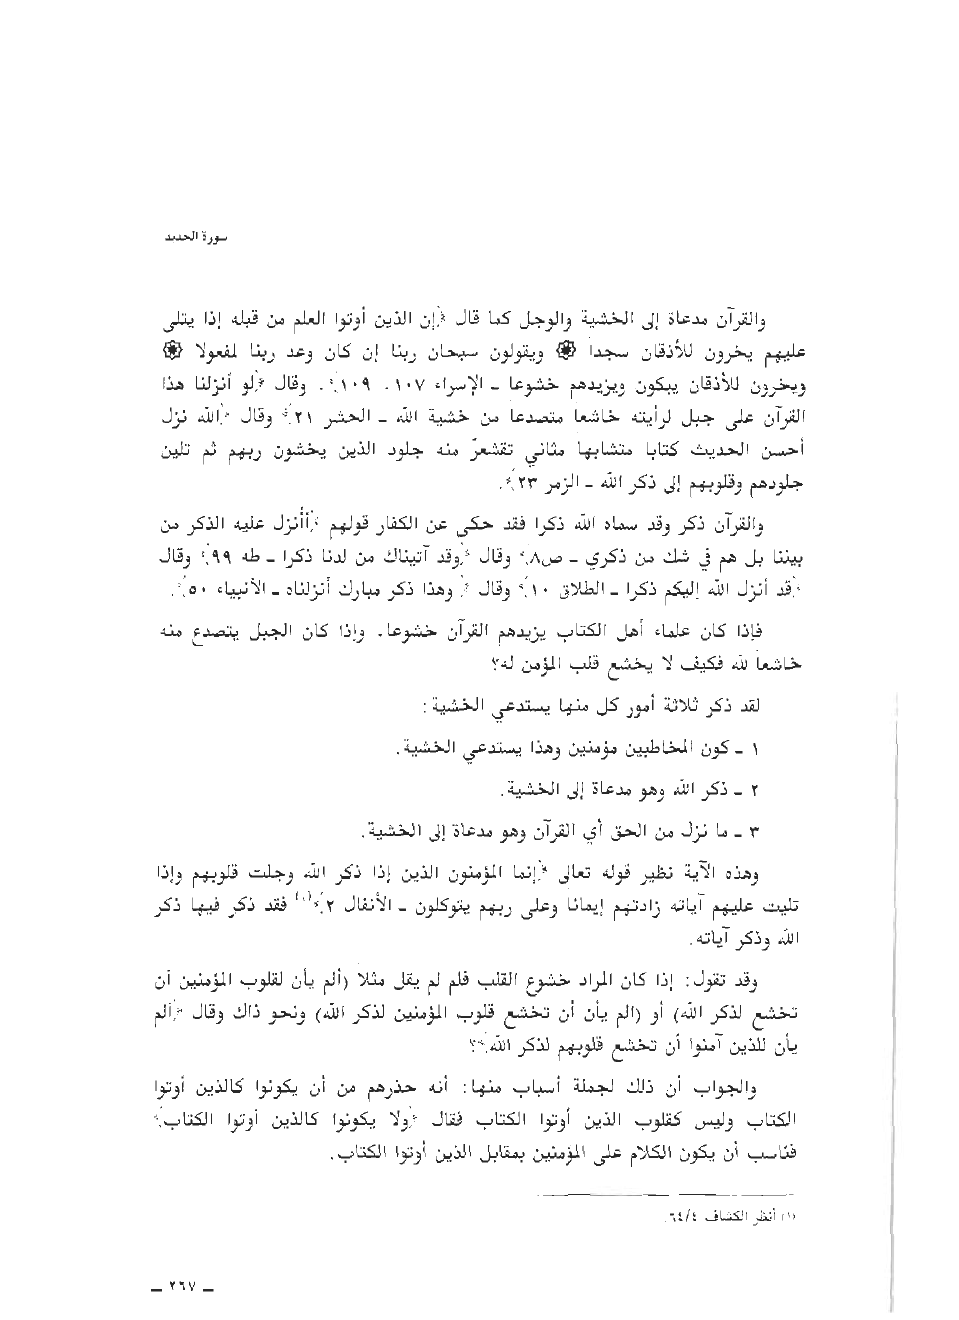 سورة الحديد
والقرآن مدعاة إلى الخشية والوجل كما قال ﴿إن الذين أوتوا العلم من قبله إذا يتلى
عليهم يخرون للأذقان سجدا ۞ ويقولون سبحان ربنا إن كان وعد ربنا لمفعولا ۞
ويخرون للأذقان يبكون ويزيدهم خشوعا ـ الإسراء ١٠٧، ١٠٩﴾. وقال ﴿لو أنزلنا هذا
القرآن على جبل لرأيته خاشعا متصدعا من خشية الله ـ الحشر ٢١﴾ وقال ﴿الله نزل
أحسن الحديث كتابا متشابها مثاني تقشعرّ منه جلود الذين يخشون ربهم ثم تلين
جلودهم وقلوبهم إلى ذكر الله ـ الزمر ٢٣﴾.
والقرآن ذكر وقد سماه الله ذكرا فقد حكى عن الكفار قولهم ﴿أأنزل عليه الذكر من
بيننا بل هم في شك من ذكري ـ ص٨﴾ وقال ﴿وقد آتيناك من لدنا ذكرا ـ طه ٩٩﴾ وقال
﴿قد أنزل الله إليكم ذكرا ـ الطلاق ١٠﴾ وقال ﴿وهذا ذكر مبارك أنزلناه ـ الأنبياء ٥٠﴾.
فإذا كان علماء أهل الكتاب يزيدهم القرآن خشوعا. وإذا كان الجبل يتصدع منه
خاشعا لله فكيف لا يخشع قلب المؤمن له؟
لقد ذكر ثلاثة أمور كل منها يستدعي الخشية:
١ ـ كون المخاطبين مؤمنين وهذا يستدعي الخشية.
٢ ـ ذكر الله وهو مدعاة إلى الخشية.
٣ ـ ما نزل من الحق أي القرآن وهو مدعاة إلى الخشية.
وهذه الآية نظير قوله تعالى ﴿إنما المؤمنون الذين إذا ذكر الله وجلت قلوبهم وإذا
تليت عليهم آياته زادتهم إيمانا وعلى ربهم يتوكلون ـ الأنفال ٢﴾(١) فقد ذكر فيها ذكر
الله وذكر آياته.
وقد تقول: إذا كان المراد خشوع القلب فلم لم يقل مثلا (ألم يأن لقلوب المؤمنين أن
تخشع لذكر الله) أو (الم يأن أن تخشع قلوب المؤمنين لذكر الله) ونحو ذاك وقال ﴿ألم
يأن للذين آمنوا أن تخشع قلوبهم لذكر الله﴾؟
والجواب أن ذلك لجملة أسباب منها: أنه حذرهم من أن يكونوا كالذين أوتوا
الكتاب وليس كقلوب الذين أوتوا الكتاب فقال ﴿ولا يكونوا كالذين أوتوا الكتاب﴾
فناسب أن يكون الكلام على المؤمنين بمقابل الذين أوتوا الكتاب.
(١) أنظر الكشاف ٦٤/٤.
ـ ٢٦٧ ـ